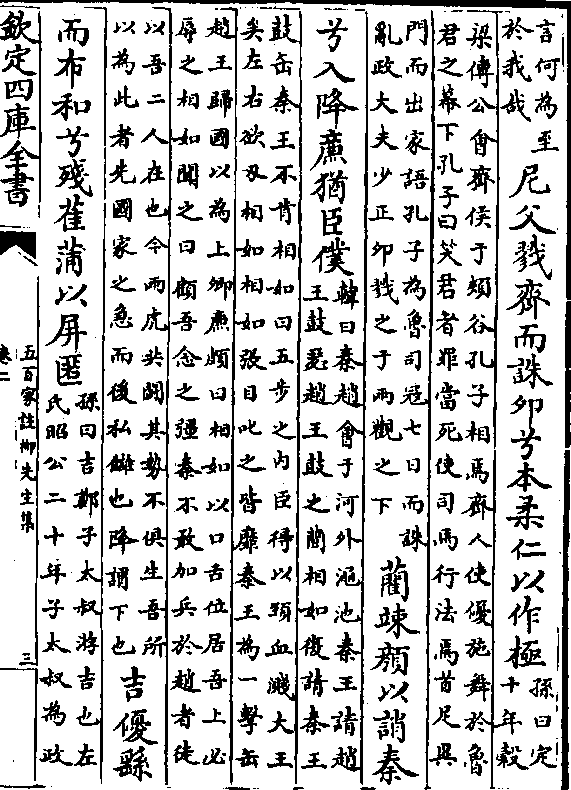 言何為至
於我哉
尼父戮齊而誅卯兮本柔仁以作極
孫曰定
十年榖
梁傳公會齊侯于頰谷孔子相焉齊人使優施舞於魯
君之幕下孔子曰笑君者罪當死使司馬行法焉首足異
門而出家語孔子為魯司冦七日而誅
亂政大夫少正卯戮之于兩觀之下
藺竦顔以誚秦
兮入降廉猶臣僕
韓曰秦趙會于河外澠池秦王請趙
王鼓瑟趙王鼓之藺相如復請秦王
鼓缶秦王不肯相如曰五步之内臣得以頸血濺大王
矣左右欲刃相如相如張目叱之皆靡秦王為一擊缶
趙王歸國以為上卿廉頗曰相如以口舌位居吾上必
辱之相如聞之曰顧吾念之彊秦不敢加兵於趙者徒
以吾二人在也今兩虎共鬬其勢不俱生吾所
以為此者先國家之急而後私讎也降謂下也
吉優繇
而布和兮殘萑蒲以屏匿
孫曰吉鄭子太叔游吉也左
氏昭公二十年子太叔為政
欽定四庫全書
卷二
五百家註柳先生集
三